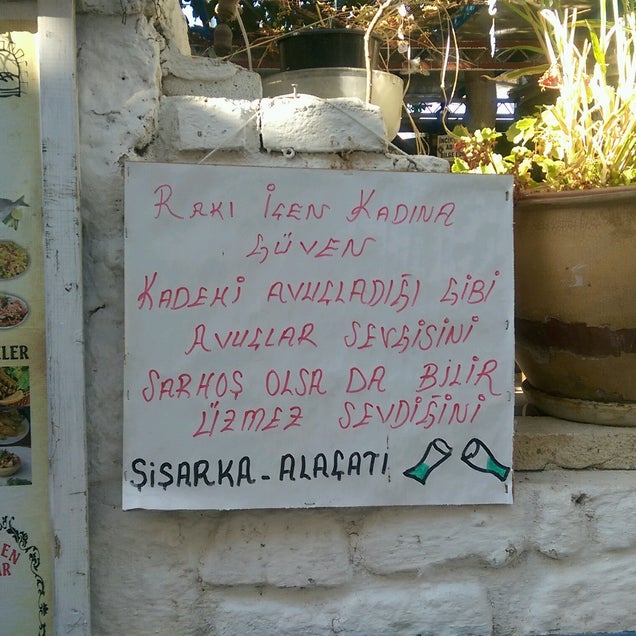 RAKI İÇEN KADINA
GÜVEN
KADEHİ AVUÇLADIĞI GİBİ
AVUÇLAR SEVGİSİNİ
SARHOŞ OLSA DA BİLİR
ÜZMEZ SEVDİĞİNİ
ŞİŞARKA - ALAÇATI